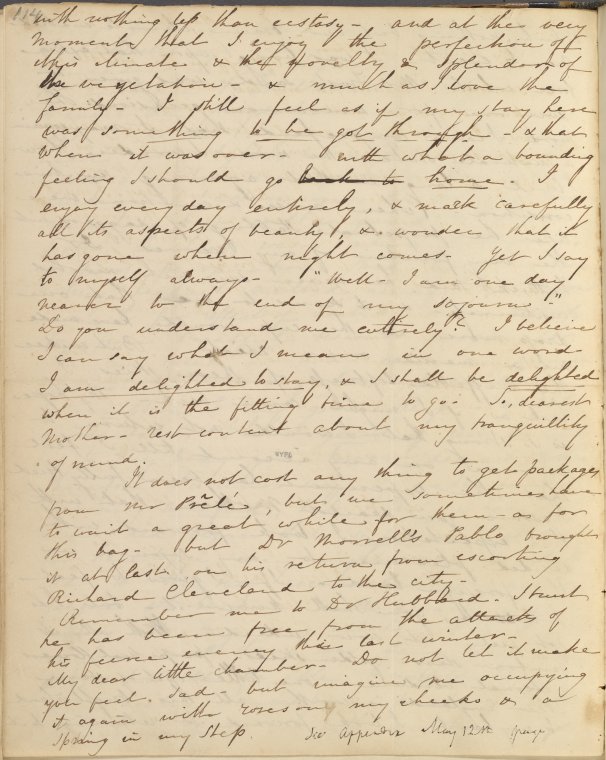 114
with nothing less than ecstasy - and at the very
moment that I enjoy the perfection of
this climate & the novelty & splendor of
the vegetation - & much as I love the
family - I still feel as if my stay here
was something to be got through - & that
when it was over - with what a bounding
feeling I should go back to home. I
enjoy every day entirely, & mark carefully
all its aspects of beauty, & wonder that it
has gone when night comes. Yet I say
to myself always - "Well - I am one day
nearer to the end of my sojourn".
Do you understand me entirely? I believe
I can say what I mean in one word
I am delighted to stay, & I shall be delighted
when it is the fitting time to go. So, dearest
Mother - rest content about my tranquillity
of mind.
NYPL
It does not cost any thing to get packages
from Mr Prêlé, but we sometimes have
to wait a great while for them - as for
this bag - but Dr Morrell's Pablo brought
it at last on his return from escorting
Richard Cleveland to the city -
Remember me to Dr Hubbard. I trust
he has been free from the attacks of
his fierce enemy this last winter -
My dear little chamber - Do not let it make
you feel sad - but imagine me occupying
it again with roses on my cheeks & a
spring in my step.
See Appendix May 12th